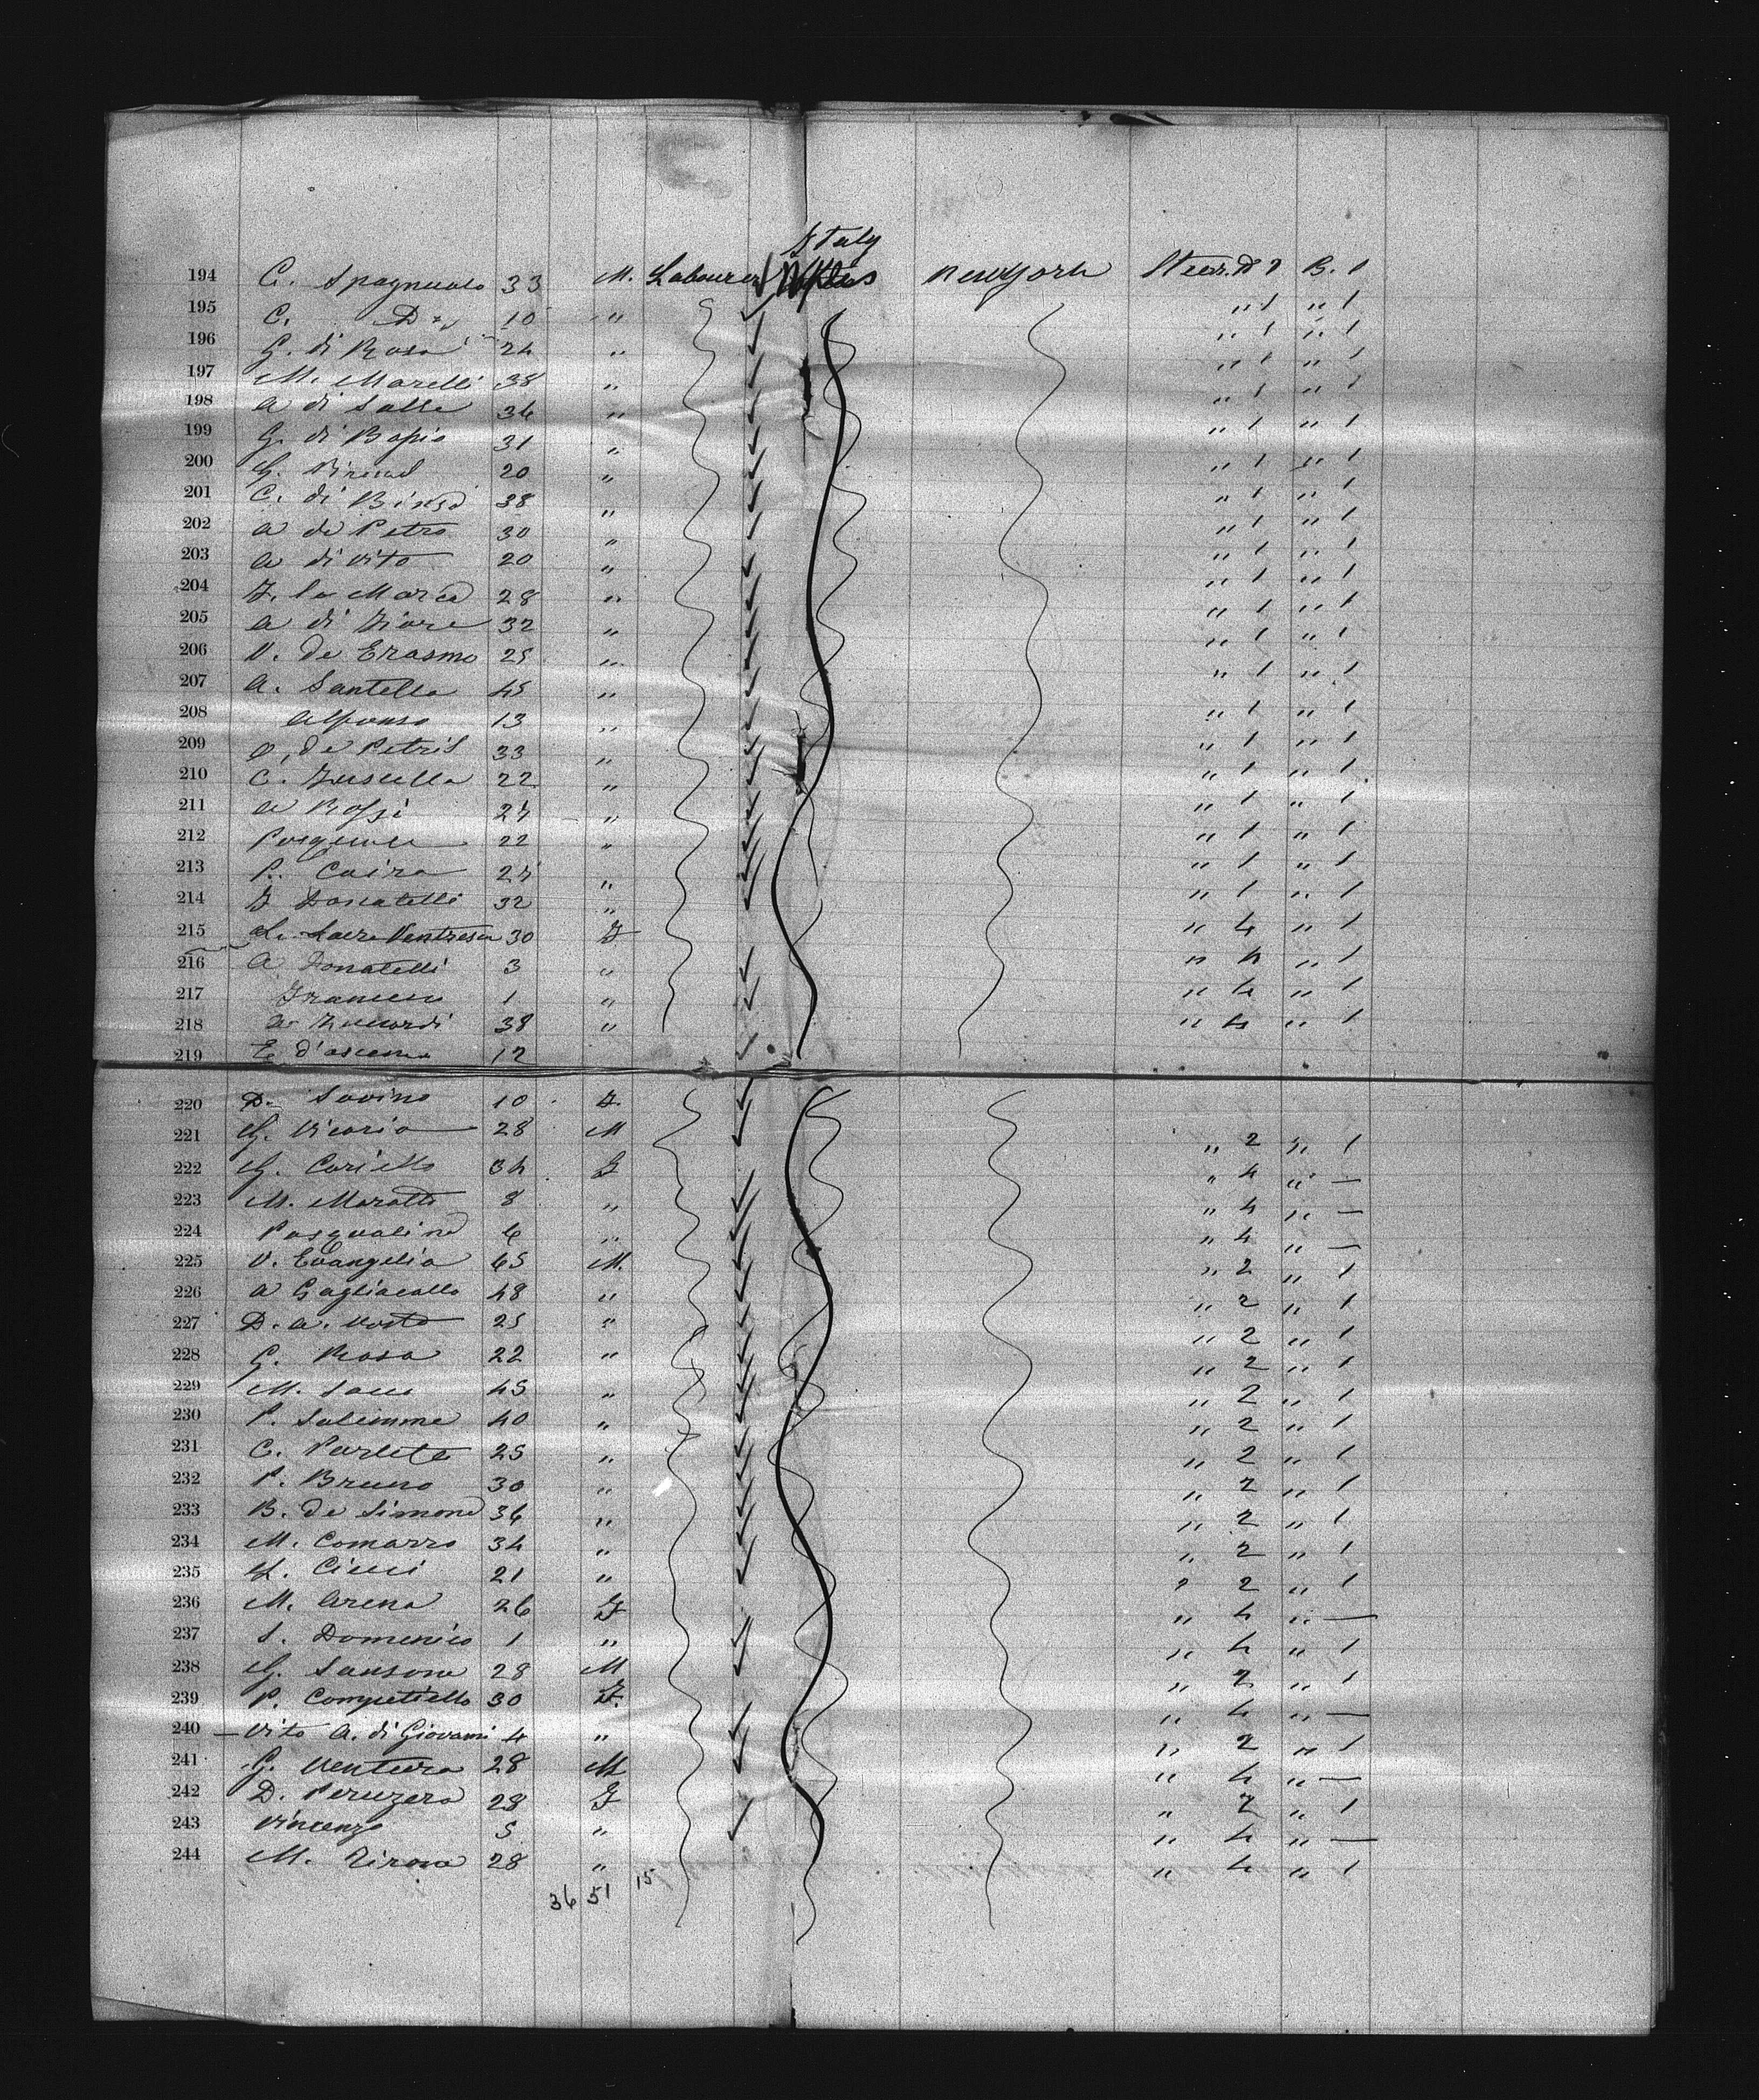 Italy
194 C. Spagnuolo 33 M. Labourer Naples New York Steer. No 1 B. 1
195 C. Do 10 " " 1 " 1
196 G. di Rosa 24 " " 1 " 1
197 M. Marelli 38 " " 1 " 1
198 A di Salle 36 " " 1 " 1
199 G. di 31 " " 1 " 1
200 G. 20 " " 1 " 1
201 C. di 38 " " 1 " 1
202 A de Petro 30 " " 1 " 1
203 A di Vito 20 " " 1 " 1
204 F. la Marca 28 " " 1 " 1
205 A di Fiore 32 " " 1 " 1
206 V. de Erasmo 25 " " 1 " 1
207 A. Santella 45 " " 1 " 1
208 Alfonso 13 " " 1 " 1
209 de Petris 33 " " 1 " 1
210 C. Fusella 22 " " 1 " 1
211 A Rossi 24 " " 1 " 1
212 Pasquale 22 " " 1 " 1
213 P. Caira 24 " " 1 " 1
214 F Donatelli 32 " " 1 " 1
215 L. Ventresca 30 F " 4 " 1
216 A Donatelli 3 " " 4 " 1
217 Francesco 1 " " 4 " 1
218 A. 38 " " 4 " 1
219 E d'ascenso 12
220 D. Savino 10 F.
221 G. Vicario 28 M " 2 " 1
222 G. Coriello 34 F " 4 " —
223 M. Maratta 8 " " 4 " —
224 Pasqualina 6 " " 4 " —
225 V. Evangelia 65 M. " 2 " 1
226 A Gagliacollo 48 " " 2 " 1
227 D. A. 25 " " 2 " 1
228 G. Rosa 22 " " 2 " 1
229 M. Sacci 45 " " 2 " 1
230 P. Salimme 40 " " 2 " 1
231 C. Parlete 25 " " 2 " 1
232 P. Bruno 30 " " 2 " 1
233 B. de Simone 36 " " 2 " 1
234 M. Comarro 34 " " 2 " 1
235 L. Cicci 21 " " 2 " 1
236 M. Arena 26 F " 4 " —
237 S. Domenico 1 " " 4 " 1
238 G. Sansone 28 M " 2 " 1
239 P. Competiello 30 F. " 4 " —
240 Vito A. di Giovanni 4 " " 2 " 1
241 G. Ventura 28 M " 4 " —
242 D. Peruzera 28 F " 2 " 1
243 Vincenzo 5 " " 4 " —
244 M. Zirona 28 " " 4 " 1
36 51 15